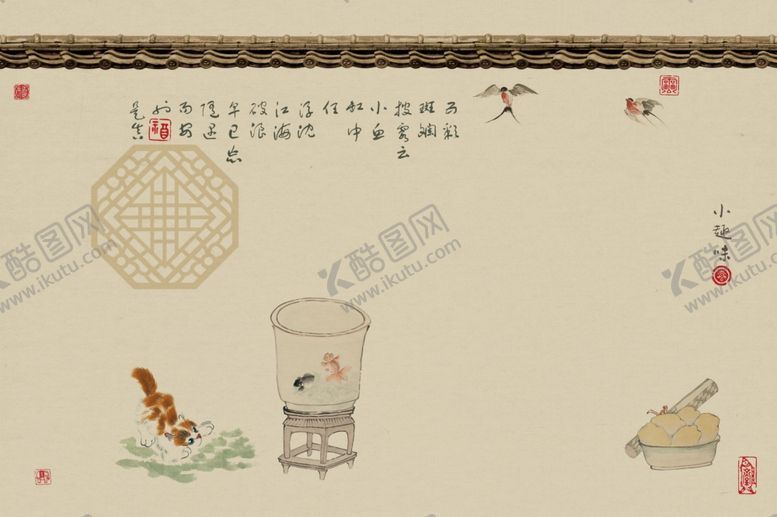 五彩
斑斓
小鱼
缸中
任
浮沈
江海
破浪
早已忘
随遇
而安
是真
小趣味
酷图网
www.ikutu.com
酷图网
www.ikutu.com
酷图网
www.ikutu.com